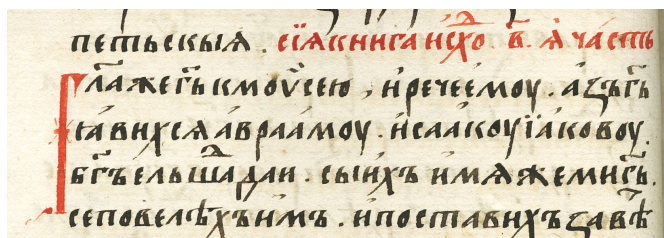 петьскыꙗ. сїѧ книга исхо в҃. ѧ часть
Гл҃аже гь҃ к моѷсею, и рече емоу. азъ гь҃
ꙗвихсѧ авраамоу. исаакоу їаковоу.
бг҃ъ ельшадаи. сыихъ имѧже ми гь҃.
се повелѣхъ имъ. и поставихъ завѣ